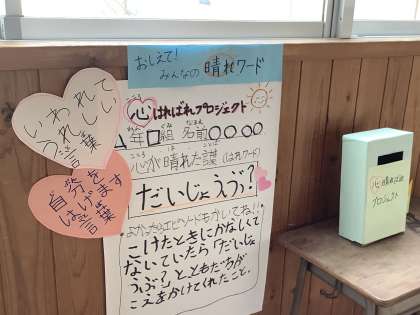 おしえて!
みんなの晴れワード
心はればれプロジェクト
年□組 名前○○○○
心が晴れた言葉(はれワード)
だいじょうぶ?
よかったらエピソードもかいてね!!
こけたときにかなしくて
ないていたら「だいじょ
うぶ?」とともだちが
こえをかけてくれたこと。
いわれて
うれしい
言葉
自分を
はげます
言葉
心晴ればれ
プロジェクト